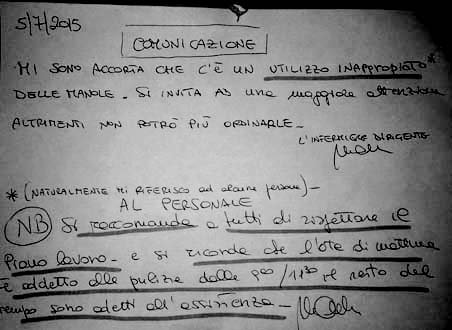 5/7/2015
COMUNICAZIONE
MI SONO ACCORTA CHE C'È UN UTILIZZO INAPPROPIATO*
DELLE MANOLE. SI INVITA AD una maggiore attenzione
ALTRIMENTI NON POTRÒ PIÙ ORDINARLE_
L'INFERMIERE DIRIGENTE
*(NATURALMENTE MI RIFERISCO ad alcune persone)_
AL PERSONALE
NB Si raccomanda a tutti di rispettare il
Piano lavoro_ e si ricorda che l'ota di mattina
è addetto alle pulizie dalle 900/1130 il resto del
tempo sono adetti all'assistenza_